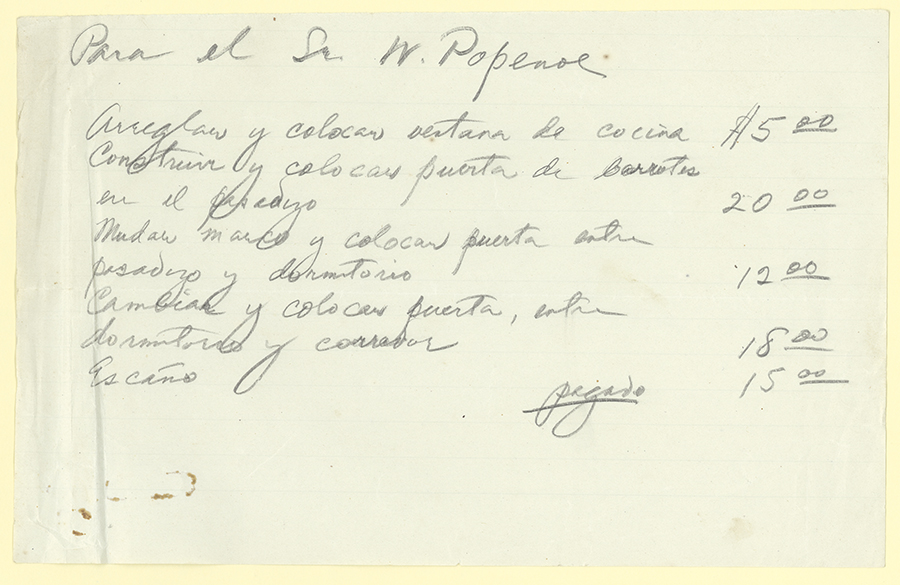 Para el Sr. W. Popenoe
Arreglar y colocar ventana de cocina 5 00
Construir y colocar puerta de barrotes
en el pasadizo 20 00
Mudar marco y colocar puerta entre
pasadizo y dormitorio 12 00
Cambiar y colocar puerta, entre
dormitorio y corredor 18 00
Escaño 15 00
pagado